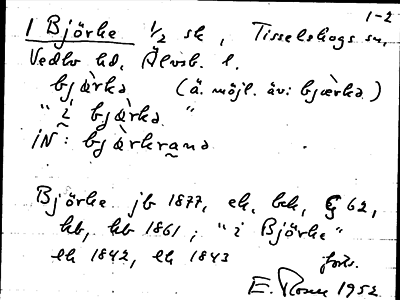 1-2
1 Björke 1/2 sk, Tisselskogs sn,
Vedbo hd, Älvsb. l.
bjæ̀rka (ä. möjl. äv: bjærka.)
" i bjæ̀rka "
iN: bjæ̀rkrana
Björke jb 1877, ek, bek, § 62,
hb, kb 1861; "i Björke"
ek 1842, lk 1843
forts.
E. Rosen 1952